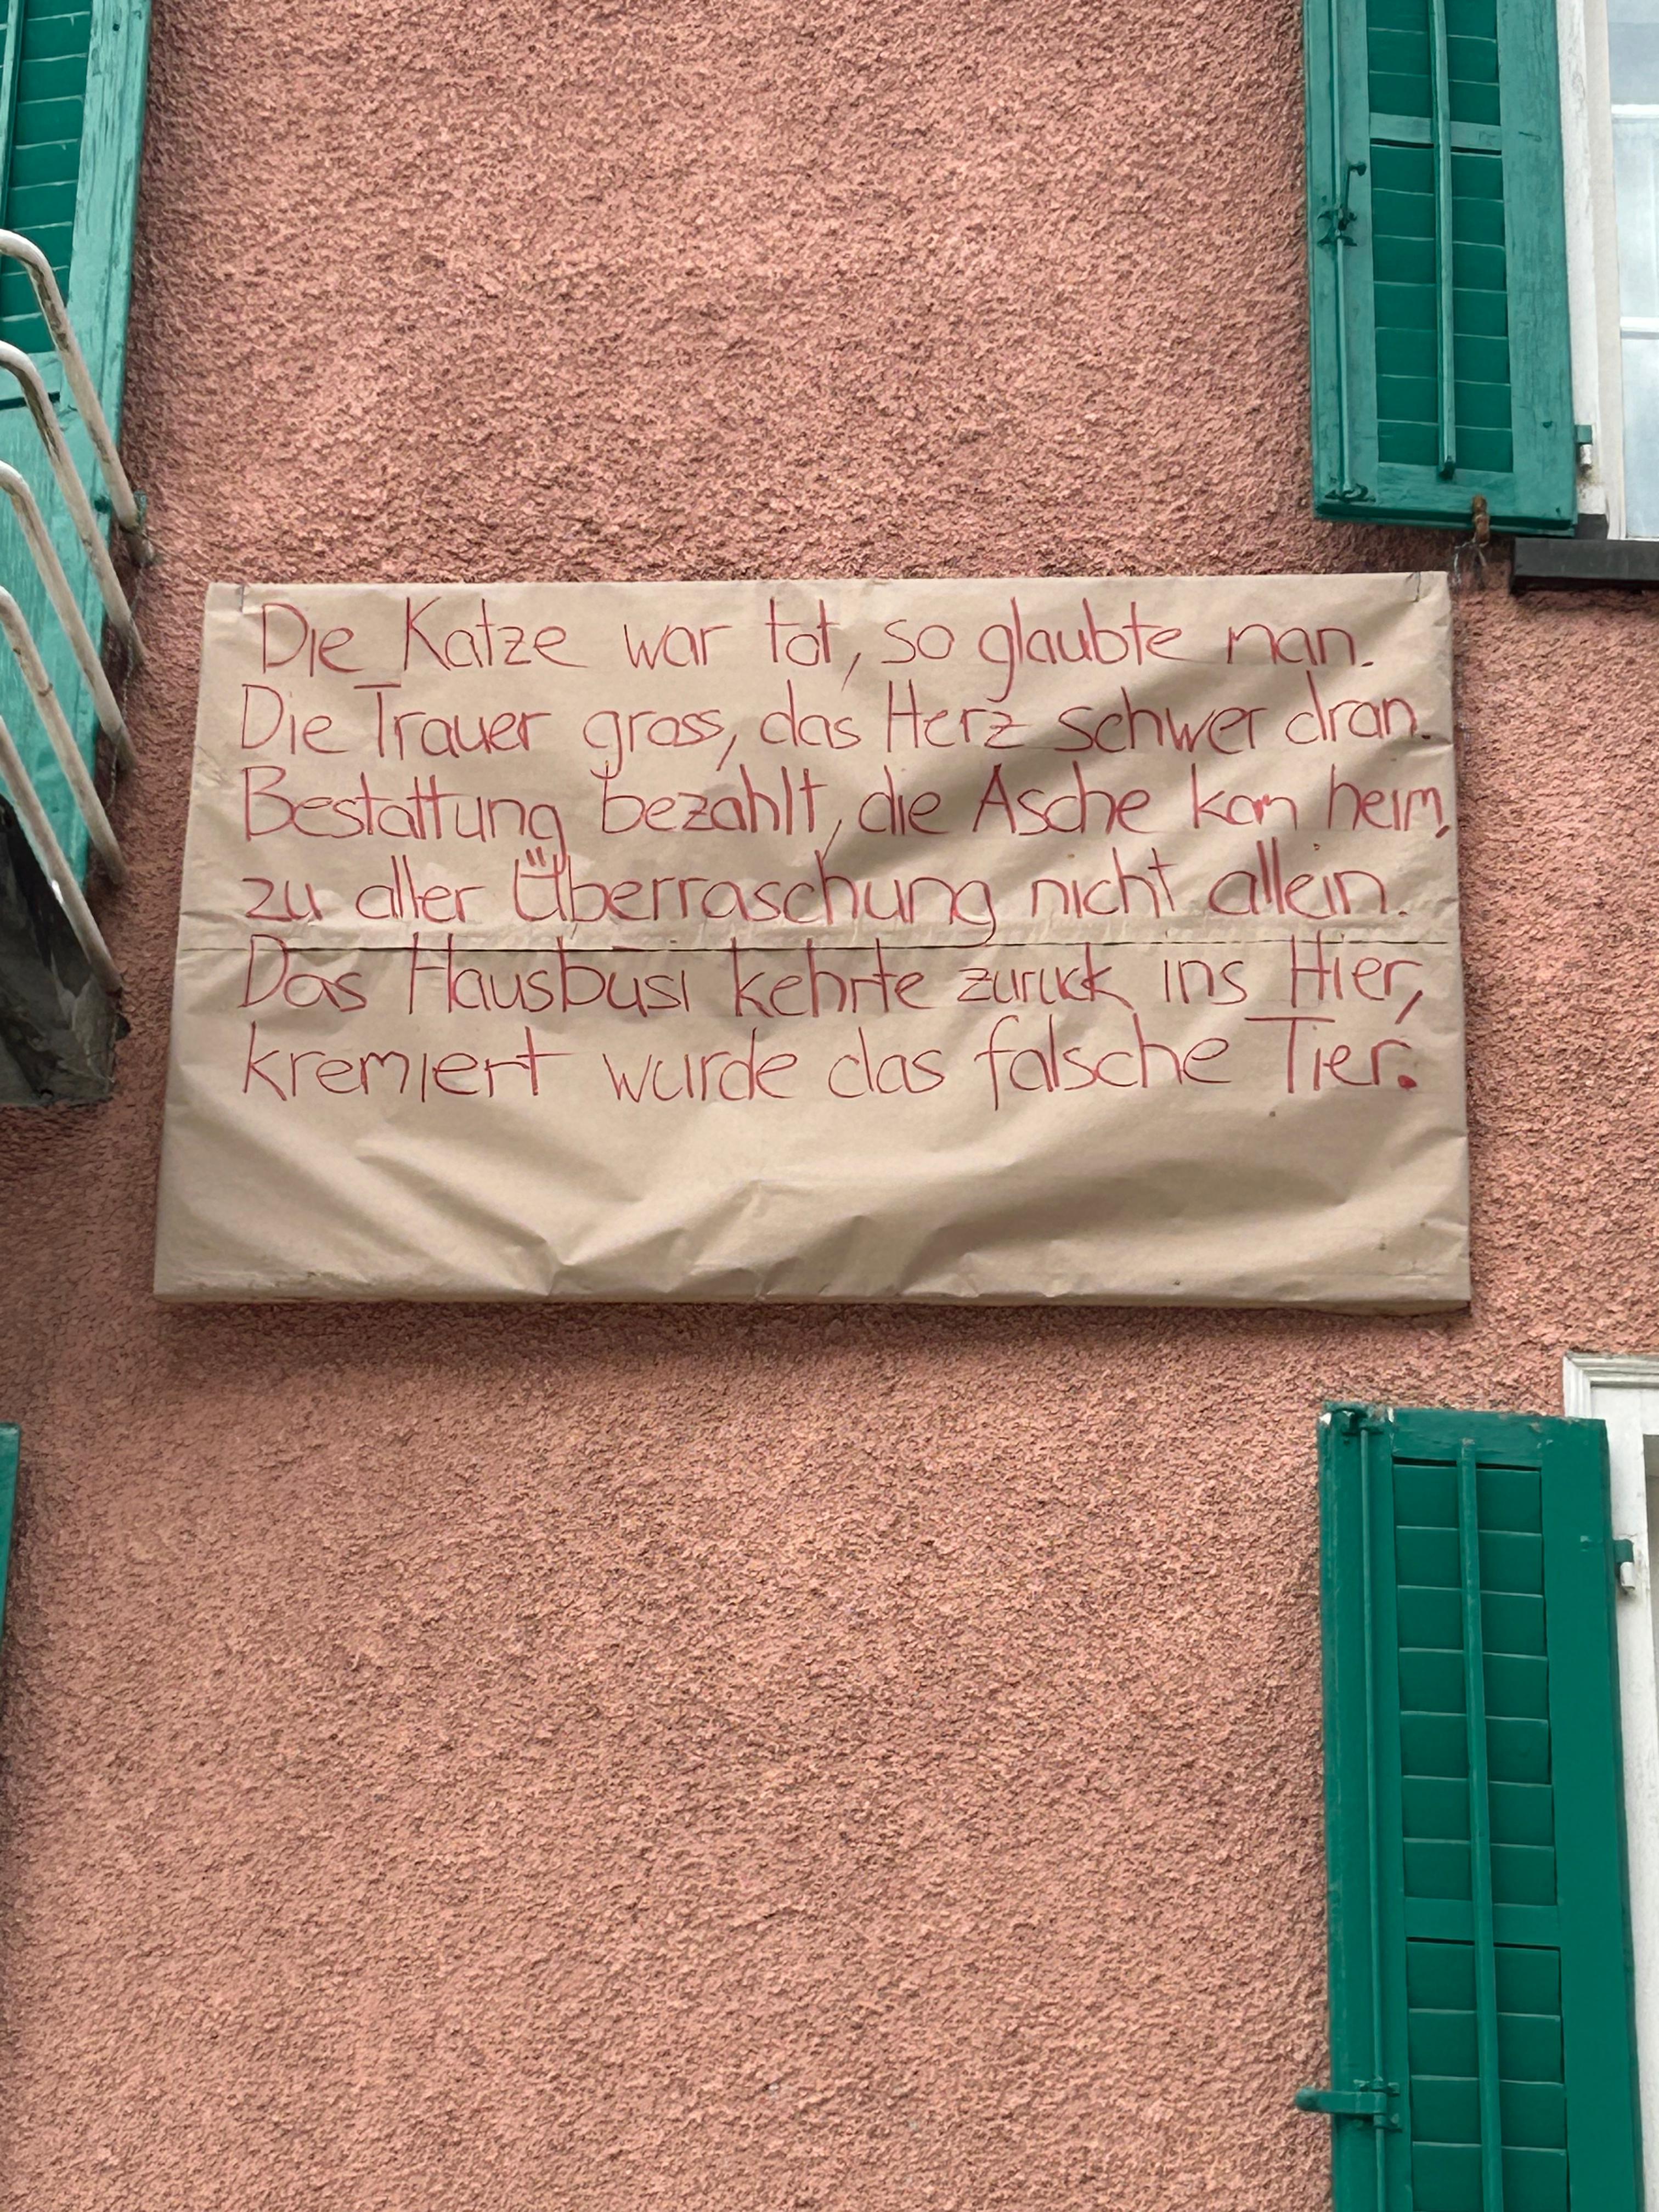 Die Katze war tot, so glaubte man.
Die Trauer gross, das Herz schwer dran.
Bestattung bezahlt, die Asche kam heim,
zu aller Überraschung nicht allein.
Das Hausbüsi kehrte zurück ins Hier,
kremiert wurde das falsche Tier.